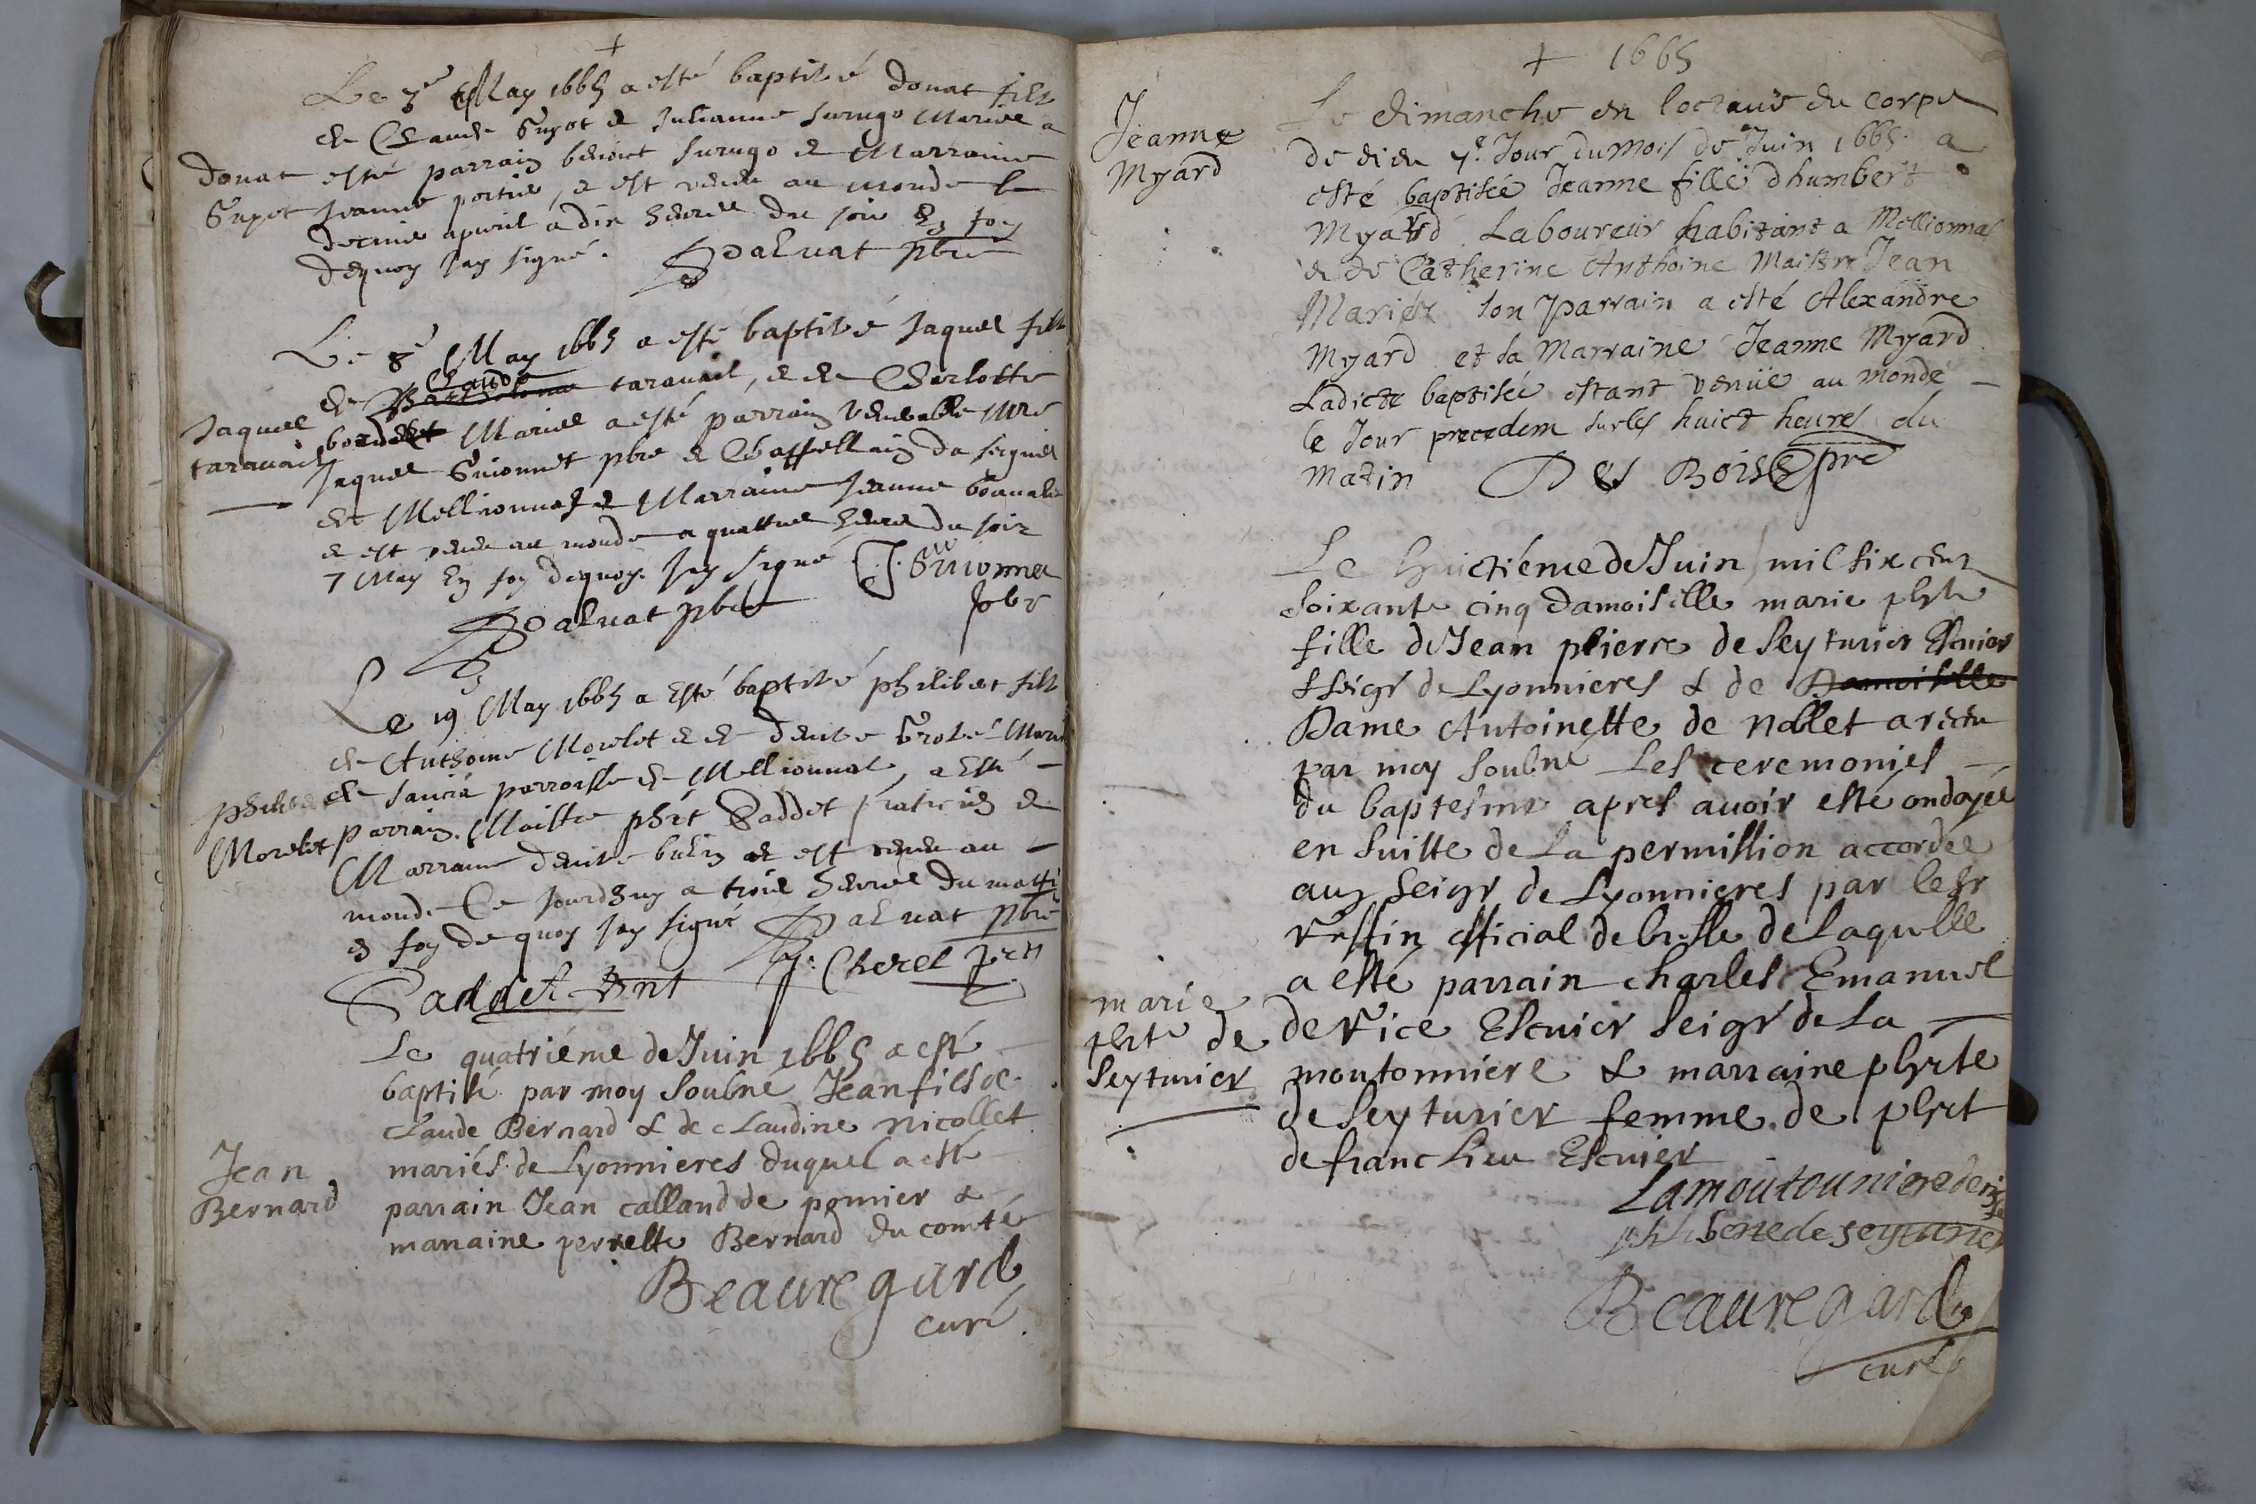 +
Le 3e May 1665 a esté baptisé donat filz
de Claude Guyot & Julianne Surugo Mariés a
donat
Guyot
esté parrain benoict Surugo & Marraine
Jeanne portier, & est venu au monde le
dernier apuril a dix heures du soir En foy
dequoy Jay signé. Daluat pbre
Le 8e May 1665 a esté baptisé Jaques filz
de Claude taravail, & de Cherlotte
Jaques
taravail
Mariés a esté parrain venerable Mre
Jaques Guionnet pbre & Chappellain du
de Mellionnas & Marraine Jeanne
& est venu au monde a quattre heures du soir
7 May En foy dequoy Jay signé J. Guionnet
Daluat pbre pbr
Le 19 May 1665 a Esté baptisé philibert filz
de Anthoine Morelet & de denise Mariés
de parroisse de Mellionnas, a Esté
philibert
Morelet
parrain Maistre phit Gaddet praticien &
Marraine denise & est venu au
monde Ce Jourdhuy a trois heures du matin
En foy de quoy Jay signé Daluat pbre
Gaddet Cherel pnt
Le quatriéme de Juin 1665 a esté
baptisé par moy Soubné Jean fils de
Claude Bernard & de Claudine Nicollet
Jean
Bernard
mariés de Lyonnieres duquel a esté
parrain Jean calland de pomier &
marraine perrette Bernard du comté
Beauregard
curé
+ 1665
Jeanne
Myard
Le dimanche en loctaue du corps
de dieu 7e Jour du Mois de Juin 1665 a
esté baptisée Jeanne fille dhumbert
Myard Laboureur habitant a Mellionnas
& de Catherine Anthoine Maistre Jean
Mariés son Parrain a esté Alexandre
Myard et sa Marraine Jeanne Myard
Ladicte baptisée estant venüe au monde
le Jour precedem sur les huict heures du
matin Des Bois pre
Le huictiéme de Juin mil six cent
soixante cinq damoiselle marie phte
fille de Jean pierre de Seyturier Escuier
& seigr de Lyonnieres & de Damoiselle
Dame Antoinette de Nollet a receu
par moy soubné Les ceremonies
du baptesme apres auoir esté ondoyée
en suitte de La permission accordée
aux seigr de Lyonnieres par le Sr
official de bresse de Laquelle
a esté parrain charles Emanuel
marie
phte de
Seyturier
de Escuier seigr de La
moutonniere & marraine phrte
de Seyturier femme de phrt
de francheu Escuier
Lamoutouniere de
philiberte de seyturier
Beauregard
curé